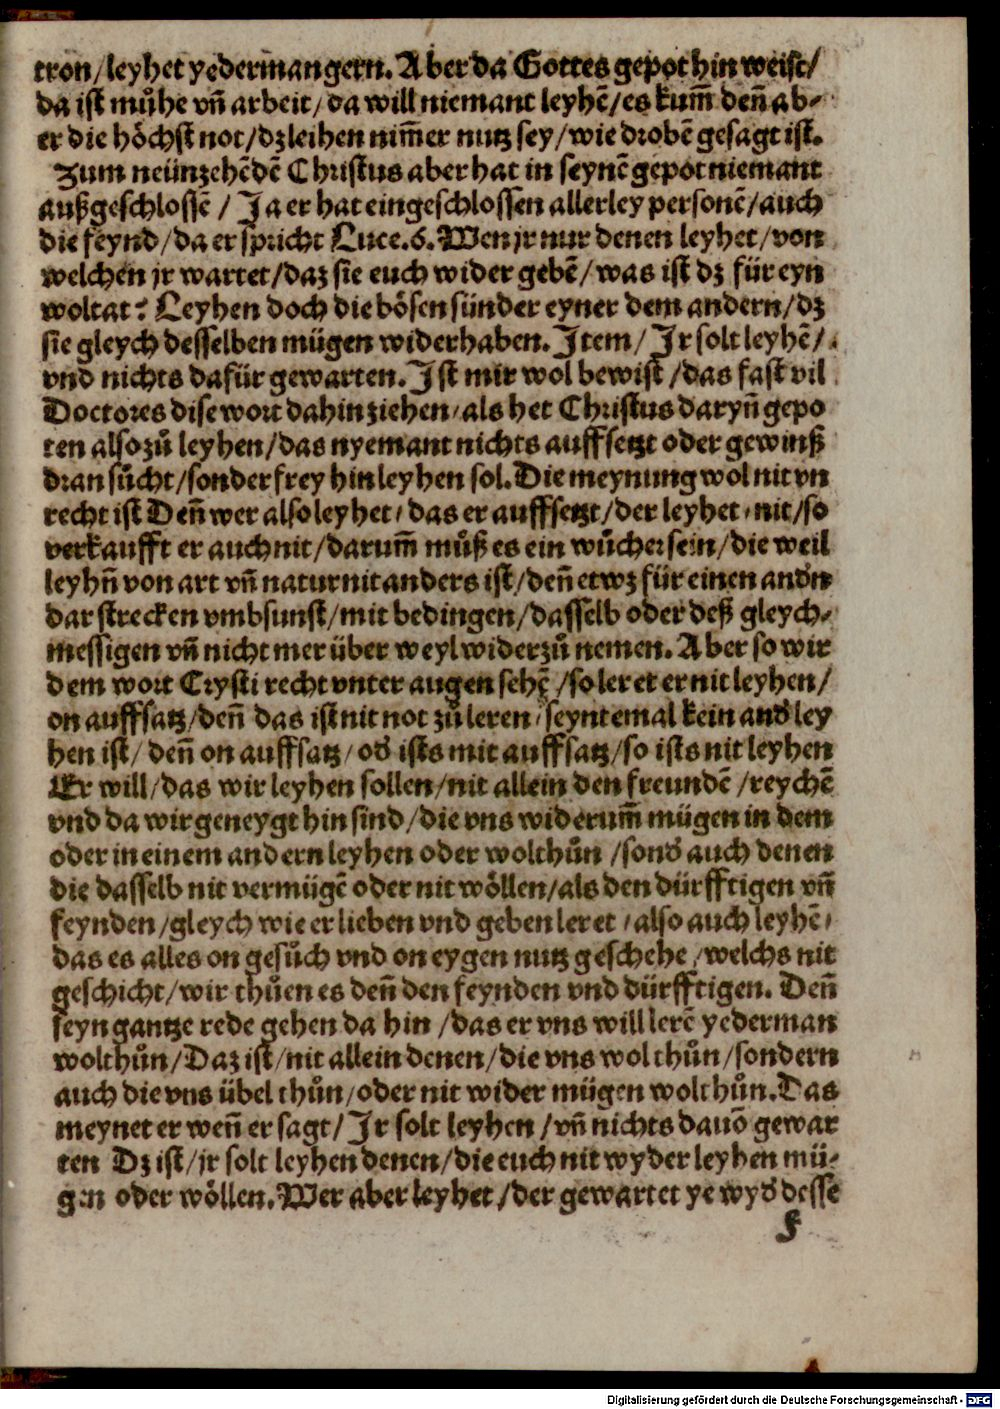 tron/leyhet yederman gern. Aber da Gottes gepot hin weist/
da ist můhe vñ arbeit/da will niemant leyhē/es kum̃ den̄ ab⸗
er die höchst not/dz leihen nim̃er nutz sey/wie drobē gesagt ist.
Zum neünzehēdē Christus aber hat in seynē gepot niemant
außgeschlossē / Ja er hat eingeschlossen allerley personē/auch
die feynd/da er spricht Luce.6. Wen jr nur denen leyhet/von
welchen jr wartet/daz sie euch wider gebē/was ist dz für eyn
woltat? Leyhen doch die bösen sünder eyner dem andern/dz
sie gleych desselben mügen widerhaben. Item/ Ir solt leyhē/
vnd nichts dafür gewarten. Ist mir wol bewist /das fast vil
Doctores dise wort dahin ziehen/als het Christus daryn̄ gepo
ten also zů leyhen/das nyemant nichts auffsetzt oder gewinß
dran sůcht/sonder frey hin leyhen sol. Die meynung wol nit vn
recht ist Den̄ wer also leyhet/das er auffsetzt/der leyhet nit/so
verkaufft er auch nit/darum̃ můß es ein wůcher sein/die weil
leyhn̄ von art vn̄ natur nit anders ist/den̄ etwz für einen andn
dar strecken vmbsunst/mit bedingen/dasselb oder deß gleych⸗
messigen vn̄ nicht mer über weyl widerzů nemen. Aber so wir
dem wort Crysti recht vnter augen sehē /so leret er nit leyhen/
on auffsatz/den̄ das ist nit not zů leren/seyntemal kein and̕ ley
hen ist/ den̄ on auffsatz/od̕ ists mit auffsatz/so ists nit leyhen
Er will/das wir leyhen sollen/nit allein den freundē /reychē
vnd da wir geneygt hin sind/die vns widerum̃ mügen in dem
oder in einem andern leyhen oder wolthůn /sond̕ auch denen
die dasselb nit vermügē oder nit wöllen/als den dürfftigen vn̄
feynden/gleych wie er lieben vnd geben leret/also auch leyhē/
das es alles on gesůch vnd on eygen nutz geschehe/welchs nit
geschicht/wir thůen es den̄ den feynden vnd dürfftigen. Den̄
seyn gantze rede gehen da hin /das er vns will lerē yederman
wolthůn/Daz ist/nit allein denen/die vns wol thůn/sondern
auch die vns übel thůn/oder nit wider mügen wolthůn. Das
meynet er wen̄ er sagt/ Ir solt leyhen /vn̄ nichts dauō gewar
ten Dz ist/jr solt leyhen denen/die euch nit wyder leyhen mü⸗
gen oder wöllen. Wer aber leyhet/der gewartet ye wyd̕ desse
f
Digitalisierung gefördert durch die Deutsche Forschungsgemeinschaft - DFG